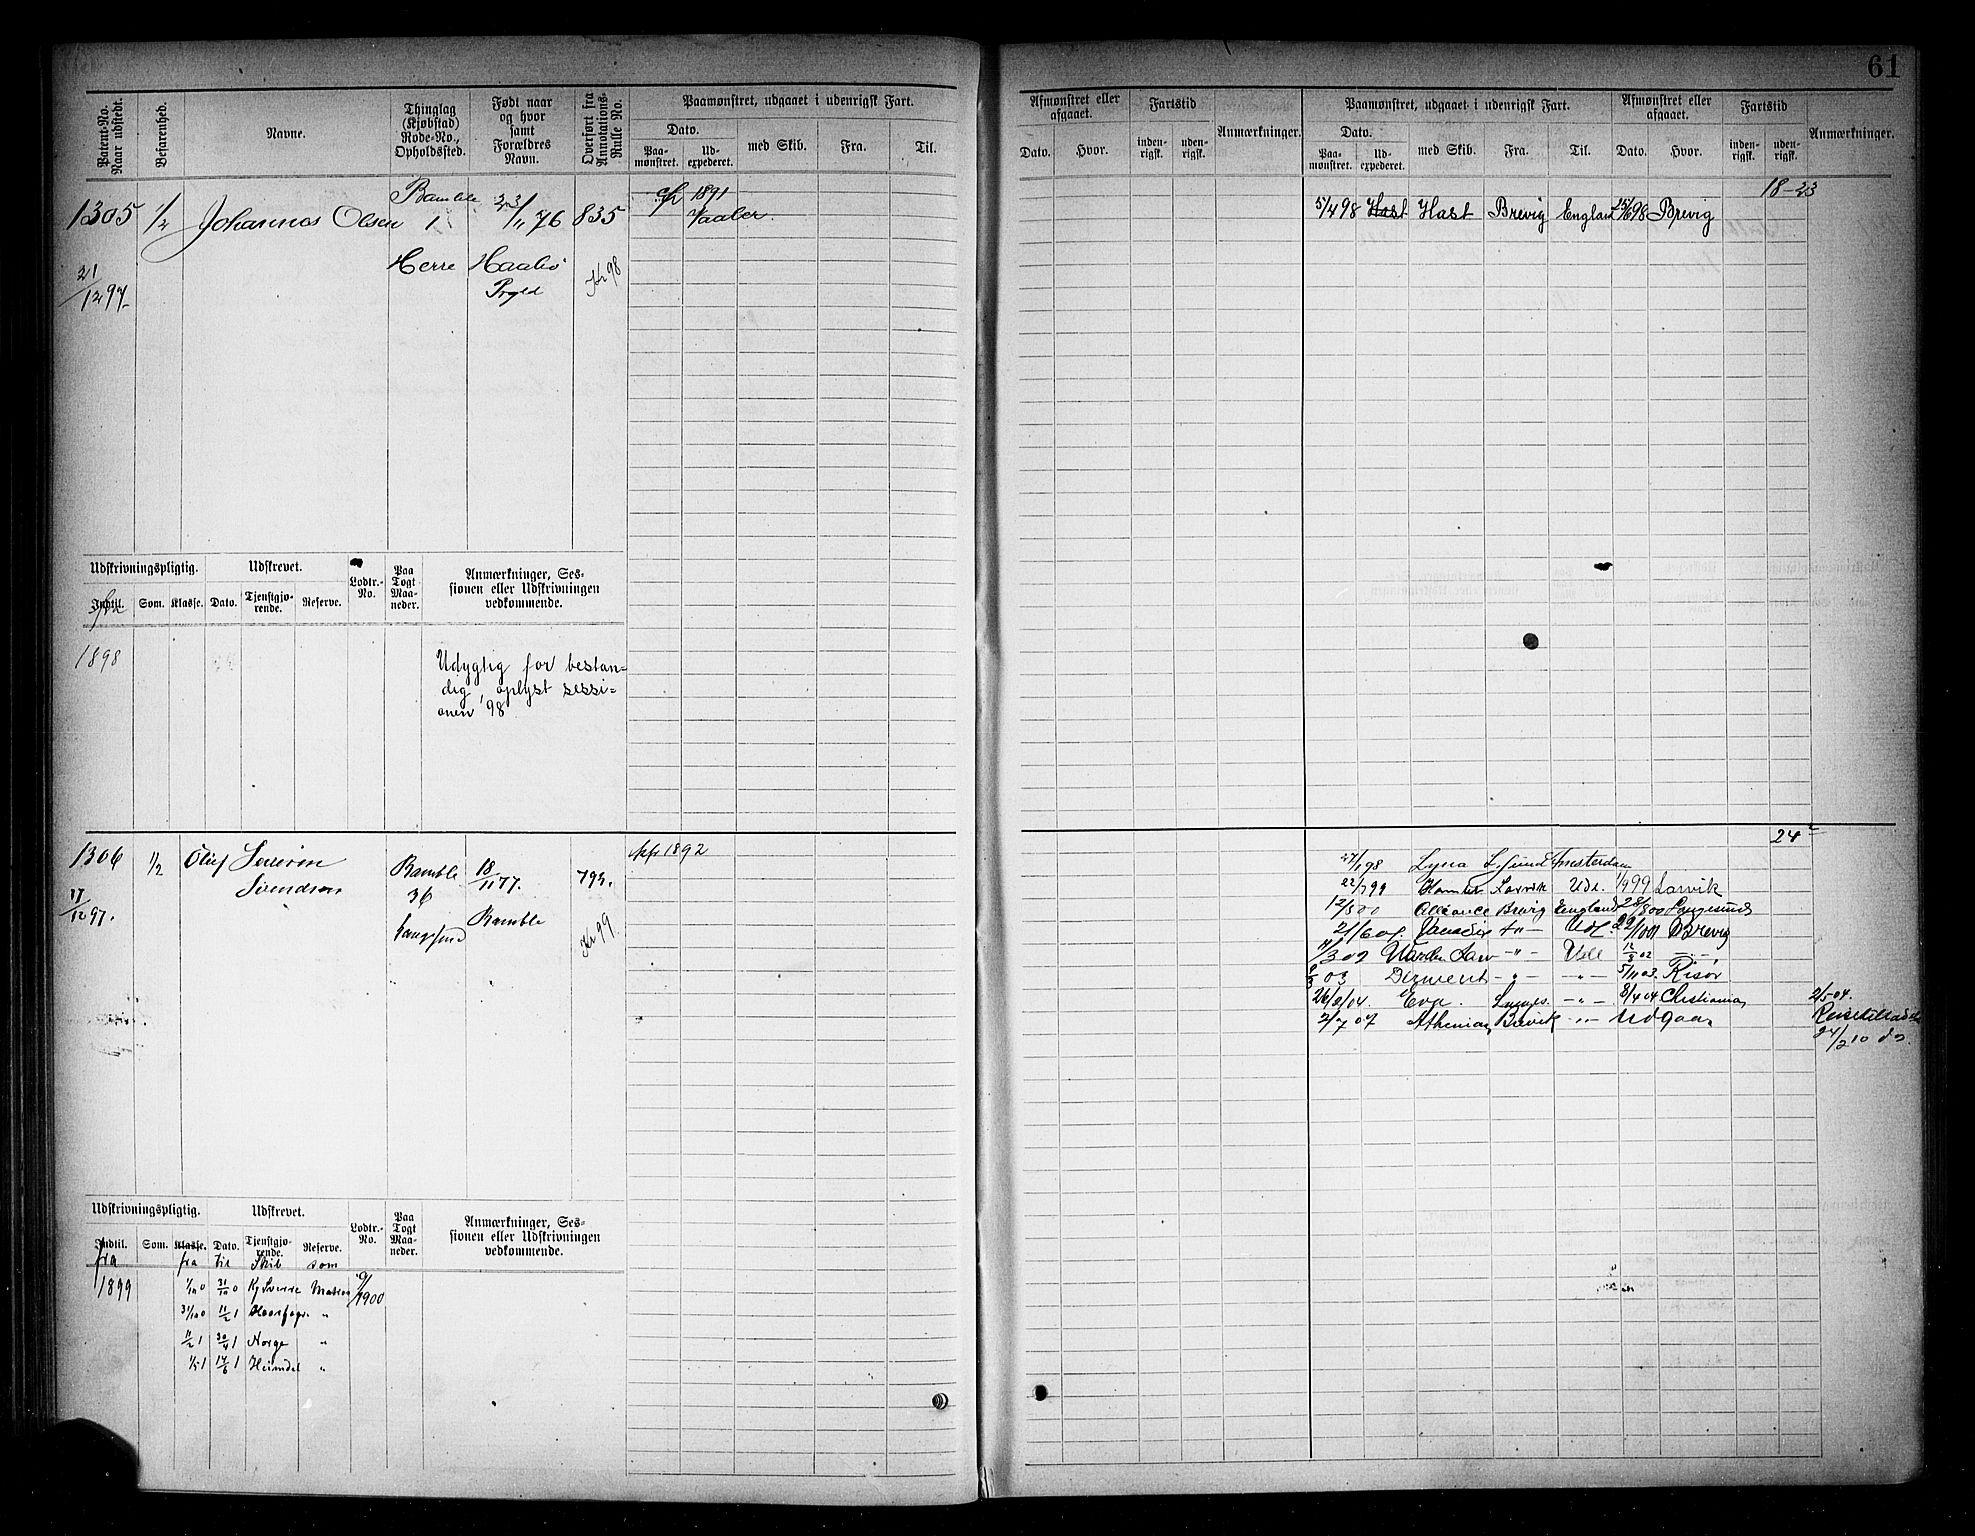 61
Patent-No. Naar udstedt.
Befarenhed.
Navne.
Thinglag (Kjøbstad) Rode-No., Opholdssted.
Født naar og hvor samt Forældres Navn.
Overført fra Annotations-Rulle No.
Paamønstret, udgaaet i udenrigsk Fart.
Dato.
Paa-mønstret.
Ud-expederet.
med Skib.
Fra.
Til.
Afmønstret eller afgaaet.
Dato.
Hvor.
Fartstid
inden-rigsk.
uden-rigsk.
Anmærkninger.
Paamønstret, udgaaet i udenrigsk Fart.
Dato.
Paa-mønstret.
Ud-expederet.
med Skib.
Fra.
Til.
Afmønstret eller afgaaet.
Dato.
Hvor.
Fartstid
inden-rigsk.
uden-rigsk.
Anmærkninger.
1305 1/2 Johannes Olsen Bamble 1 23/11 76 835 1891
Vaaler
21/12 97 Herre
98
18-23
5/4 98 Hast Hast Brevig England 25/6 98 Brevig
Udskrivningspligtig.
Indtil.
Som.
Klasse.
Udskrevet.
Dato.
Tjenstgjø-rende.
Reserve.
Lodtr.-No.
Paa Togt Maa-neder.
Anmærkninger, Ses-
sionen eller Udskrivningen
vedkommende.
1898
Udygtig for bestan-
dig, oplyst sessi-
onen '98
1306 1/2 Oluf Severin Bamble 18/11 77. 793. 1892
Svendsen 36
17/12 97. Langesund Bamble 99
24
98 Lyna Amsterdam
22/7 99 Larvik Udl. 1/9 99 Larvik
12/5 00 Alliance Brevig England 28/8 00 Langesund
21/6 01. Udl. Brevig
11/3 02 - " - Udl 12/8 02 - " -
03 Derwent - " - - " - 5/11 03 Risør
26/2 04. Eva. Langes. - " - 8/4 04 Christiania 2/5 04.
2/7 07 Athenian Brevik - " - Udgaar
24/2 10 do.
Udskrivningspligtig.
Indtil.
Som.
Klasse.
Udskrevet.
Dato.
Tjenstgjø-rende.
Reserve.
Lodtr.-No.
Paa Togt Maa-neder.
Anmærkninger, Ses-
sionen eller Udskrivningen
vedkommende.
fra fra til Skib som
1899 1/10 0 31/10 0 Kg Sverre Matros 9/1900
31/10 0 11/2 1 Haarfagre "
11/2 1 30/4 1 Norge "
1/5 1 14/6 1 Heimdal "